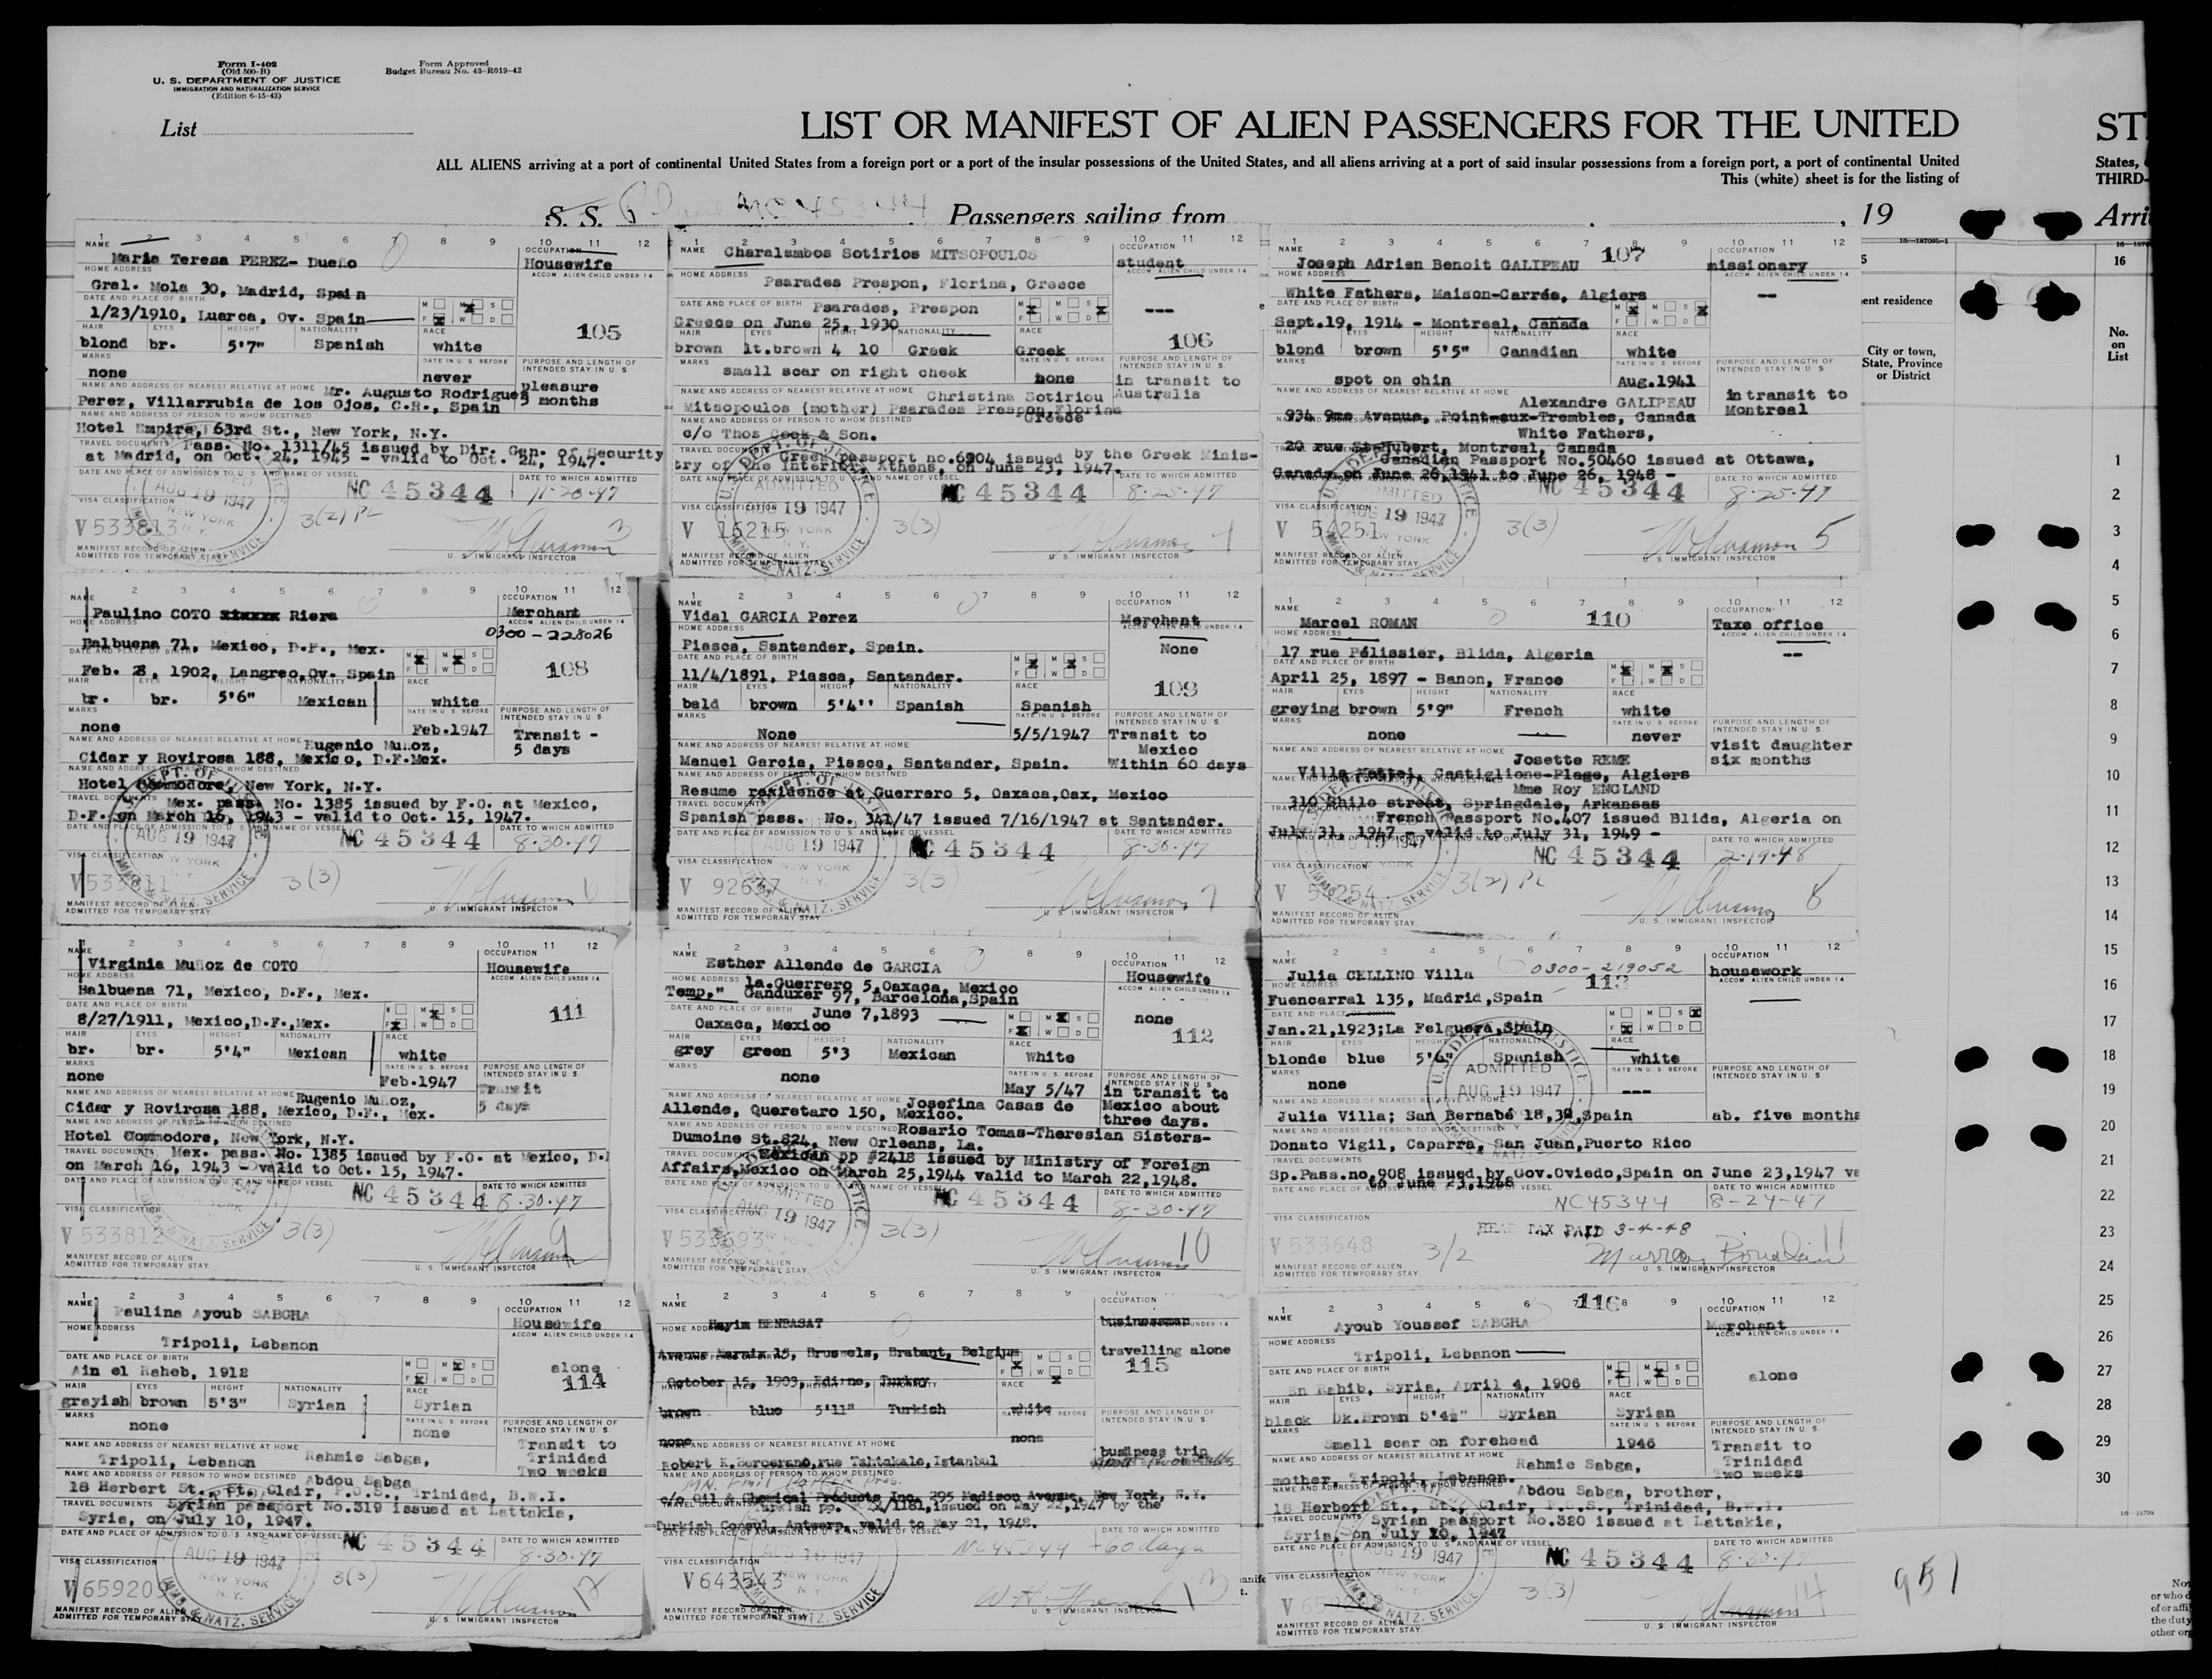 Form I-402
(Old 500-B)
U. S. DEPARTMENT OF JUSTICE
IMMIGRATION AND NATURALIZATION SERVICE
(Edition 6-15-43)
Form Approved
Budget Bureau No. 43-R019-42
List
LIST OR MANIFEST OF ALIEN PASSENGERS FOR THE UNITED
ST
ALL ALIENS arriving at a port of continental United States from a foreign port or a port of the insular possessions of the United States, and all aliens arriving at a port of said insular possessions from a foreign port, a port of continental United
States,
This (white) sheet is for the listing of
THIRD-
S. S. Passengers sailing from , 19
Arri
1 2 3 4 5 6 7 8 9 10 11 12
NAME OCCUPATION
Maria Teresa PEREZ- Dueño Housewife
HOME ADDRESS ACCOM. ALIEN CHILD UNDER 14
Gral. Mola 30, Madrid, Spain
DATE AND PLACE OF BIRTH M M S
1/23/1910, Luarca, Ov. Spain F W D
105
HAIR EYES HEIGHT NATIONALITY RACE
blond br. 5'7" Spanish white
MARKS DATE IN U. S. BEFORE PURPOSE AND LENGTH OF INTENDED STAY IN U. S.
none never pleasure
NAME AND ADDRESS OF NEAREST RELATIVE AT HOME Mr. Augusto Rodriguez 3 months
Perez, Villarrubia de los Ojos, C.R., Spain
NAME AND ADDRESS OF PERSON TO WHOM DESTINED
Hotel Empire, 63rd St., New York, N.Y.
TRAVEL DOCUMENTS Pass. No. 1311/45 issued by Dir. Gen. of Security
at Madrid, on Oct. 24, 1945 - valid to Oct. 24, 1947.
DATE AND PLACE OF ADMISSION TO U. S. AND NAME OF VESSEL DATE TO WHICH ADMITTED
AUG 19 1947 NC 45344 11-20-47
VISA CLASSIFICATION NEW YORK N.Y.
V 533813 3(2) PL 3
MANIFEST RECORD OF ALIEN
ADMITTED FOR TEMPORARY STAY U. S. IMMIGRANT INSPECTOR
1 2 3 4 5 6 7 8 9 10 11 12
NAME OCCUPATION
Charalambos Sotirios MITSOPOULOS student
HOME ADDRESS ACCOM. ALIEN CHILD UNDER 14
Psarades Prespon, Florina, Greece
DATE AND PLACE OF BIRTH Psarades, Prespon M M S
Greece on June 25, 1930 F W D ---
HAIR EYES HEIGHT NATIONALITY RACE 106
brown lt.brown 4 10 Greek Greek
MARKS DATE IN U. S. BEFORE PURPOSE AND LENGTH OF INTENDED STAY IN U. S.
small scar on right cheek none in transit to
NAME AND ADDRESS OF NEAREST RELATIVE AT HOME Christina Sotiriou Australia
Mitsopoulos (mother) Psarades Prespon,Florina
NAME AND ADDRESS OF PERSON TO WHOM DESTINED Greece
c/o Thos Cook & Son.
TRAVEL DOCUMENTS Greek passport no.6904 issued by the Greek Minis-
try of the Interior, Athens, on June 23, 1947.
DATE AND PLACE OF ADMISSION TO U. S. AND NAME OF VESSEL DATE TO WHICH ADMITTED
ADMITTED NC 45344 8-25-47
VISA CLASSIFICATION AUG 19 1947
V 16215 NEW YORK N.Y. 3(3) 4
MANIFEST RECORD OF ALIEN
ADMITTED FOR TEMPORARY STAY U. S. IMMIGRANT INSPECTOR
1 2 3 4 5 6 7 8 9 10 11 12
NAME 107 OCCUPATION
Joseph Adrien Benoit GALIPEAU missionary
HOME ADDRESS ACCOM. ALIEN CHILD UNDER 14
White Fathers, Maison-Carrée, Algiers --
DATE AND PLACE OF BIRTH M M S
Sept.19, 1914 - Montreal, Canada F W D
HAIR EYES HEIGHT NATIONALITY RACE
blond brown 5'5" Canadian white
MARKS DATE IN U. S. BEFORE PURPOSE AND LENGTH OF INTENDED STAY IN U. S.
spot on chin Aug.1941
NAME AND ADDRESS OF NEAREST RELATIVE AT HOME in transit to
Alexandre GALIPEAU Montreal
934 9me Avenue, Point-aux-Trembles, Canada
White Fathers,
20 rue St-Hubert, Montreal, Canada
Canadian Passport No.50460 issued at Ottawa,
Canada on June 26,1941 to June 26, 1948 -
NC 45344 DATE TO WHICH ADMITTED
ADMITTED AUG 19 1947 8-25-47
VISA CLASSIFICATION
V 54251 NEW YORK 3(3) 5
MANIFEST RECORD OF ALIEN
ADMITTED FOR TEMPORARY STAY U. S. IMMIGRANT INSPECTOR
NAME OCCUPATION
Paulino COTO Riera Merchant
HOME ADDRESS ACCOM. ALIEN CHILD UNDER 14
0300-228026
Balbuena 71, Mexico, D.F., Mex.
DATE AND PLACE OF BIRTH M M S
Feb. 28, 1902, Langreo,Ov. Spain F W D 108
HAIR EYES HEIGHT NATIONALITY RACE
br. br. 5'6" Mexican white
MARKS DATE IN U. S. BEFORE PURPOSE AND LENGTH OF INTENDED STAY IN U. S.
none Feb.1947 Transit -
NAME AND ADDRESS OF NEAREST RELATIVE AT HOME Eugenio Muñoz, 5 days
Cidar y Rovirosa 188, Mexico, D.F.Mex.
NAME AND ADDRESS OF PERSON TO WHOM DESTINED
Hotel Commodore, New York, N.Y.
TRAVEL DOCUMENTS Mex. pass. No. 1385 issued by F.O. at Mexico,
D.F. on March 16, 1943 - valid to Oct. 15, 1947.
DATE AND PLACE OF ADMISSION TO U. S. AND NAME OF VESSEL DATE TO WHICH ADMITTED
AUG 19 1947 NC 45344 8-30-47
VISA CLASSIFICATION NEW YORK N.Y.
3(3) 6
MANIFEST RECORD OF ALIEN
ADMITTED FOR TEMPORARY STAY. U. S. IMMIGRANT INSPECTOR
NAME OCCUPATION
Vidal GARCIA Perez Merchant
HOME ADDRESS ACCOM. ALIEN CHILD UNDER 14
Piasca, Santander, Spain. None
DATE AND PLACE OF BIRTH M M S
11/4/1891, Piasca, Santander. F W D
109
HAIR EYES HEIGHT NATIONALITY RACE
bald brown 5'4'' Spanish Spanish
MARKS DATE IN U. S. BEFORE PURPOSE AND LENGTH OF INTENDED STAY IN U. S.
None 5/5/1947 Transit to
NAME AND ADDRESS OF NEAREST RELATIVE AT HOME Mexico
Manuel Garcia, Piasca, Santander, Spain. Within 60 days
NAME AND ADDRESS OF PERSON TO WHOM DESTINED
Resume residence at Guerrero 5, Oaxaca,Oax, Mexico
TRAVEL DOCUMENTS
Spanish pass. No. 341/47 issued 7/16/1947 at Santander.
DATE AND PLACE OF ADMISSION TO U. S. AND NAME OF VESSEL DATE TO WHICH ADMITTED
AUG 19 1947 NC 45344 8-30-47
VISA CLASSIFICATION NEW YORK N.Y.
V 92637 3(3) 7
MANIFEST RECORD OF ALIEN
ADMITTED FOR TEMPORARY STAY. U. S. IMMIGRANT INSPECTOR
NAME 110 OCCUPATION
Marcel ROMAN Taxe office
HOME ADDRESS ACCOM. ALIEN CHILD UNDER 14
17 rue Pélissier, Blida, Algeria --
DATE AND PLACE OF BIRTH M M S
April 25, 1897 - Banon, France F W D
HAIR EYES HEIGHT NATIONALITY RACE
greying brown 5'9" French white
MARKS DATE IN U. S. BEFORE PURPOSE AND LENGTH OF INTENDED STAY IN U. S.
none never visit daughter
NAME AND ADDRESS OF NEAREST RELATIVE AT HOME six months
Josette REME
Villa Mattei, Castiglione-Plage, Algiers
Mme Roy ENGLAND
310 Shilo street, Springdale, Arkansas
French Passport No.407 issued Blida, Algeria on
July 31, 1947 - valid to July 31, 1949 -
AUG 19 1947 NC 45344 DATE TO WHICH ADMITTED
2-19-48
VISA CLASSIFICATION
3(2) PL 8
MANIFEST RECORD OF ALIEN
ADMITTED FOR TEMPORARY STAY U. S. IMMIGRANT INSPECTOR
NAME OCCUPATION
Virginia Muñoz de COTO Housewife
HOME ADDRESS ACCOM. ALIEN CHILD UNDER 14
Balbuena 71, Mexico, D.F., Mex.
DATE AND PLACE OF BIRTH M M S
8/27/1911, Mexico,D.F.,Mex. F W D 111
HAIR EYES HEIGHT NATIONALITY RACE
br. br. 5'4" Mexican white
MARKS DATE IN U. S. BEFORE PURPOSE AND LENGTH OF INTENDED STAY IN U. S.
none Feb.1947 Transit
NAME AND ADDRESS OF NEAREST RELATIVE AT HOME Eugenio Muñoz, 5 days
Cidar y Rovirosa 188, Mexico, D.F., Mex.
NAME AND ADDRESS OF PERSON TO WHOM DESTINED
Hotel Commodore, New York, N.Y.
TRAVEL DOCUMENTS Mex. pass. No. 1385 issued by F.O. at Mexico, D.
on March 16, 1943 - valid to Oct. 15, 1947.
DATE AND PLACE OF ADMISSION TO U. S. AND NAME OF VESSEL DATE TO WHICH ADMITTED
NC 45344 8-30-47
VISA CLASSIFICATION
V 533812 3(3) 9
MANIFEST RECORD OF ALIEN
ADMITTED FOR TEMPORARY STAY. U. S. IMMIGRANT INSPECTOR
NAME OCCUPATION
Esther Allende de GARCIA Housewife
HOME ADDRESS la.Guerrero 5,Oaxaca, Mexico ACCOM. ALIEN CHILD UNDER 14
Temp," Ganduxer 97, Barcelona,Spain
DATE AND PLACE OF BIRTH June 7,1893 M M S none
Oaxaca, Mexico F W D 112
HAIR EYES HEIGHT NATIONALITY RACE
grey green 5'3 Mexican White
MARKS DATE IN U. S. BEFORE PURPOSE AND LENGTH OF INTENDED STAY IN U. S.
none May 5/47 in transit to
NAME AND ADDRESS OF NEAREST RELATIVE AT HOME Josefina Casas de Mexico about
Allende, Queretaro 150, Mexico. three days.
NAME AND ADDRESS OF PERSON TO WHOM DESTINED Rosario Tomas-Theresian Sisters-
Dumoine St.824, New Orleans, La.
TRAVEL DOCUMENTS Mexican pp #2418 issued by Ministry of Foreign
Affairs,Mexico on March 25,1944 valid to March 22,1948.
DATE AND PLACE OF ADMISSION TO U. S. AND NAME OF VESSEL DATE TO WHICH ADMITTED
ADMITTED NC 45344 8-30-47
VISA CLASSIFICATION AUG 19 1947
3(3) 10
MANIFEST RECORD OF ALIEN
ADMITTED FOR TEMPORARY STAY. U. S. IMMIGRANT INSPECTOR
NAME OCCUPATION
Julia CELLINO Villa 0300-219052 housework
HOME ADDRESS 113 ACCOM. ALIEN CHILD UNDER 14
Fuencarral 135, Madrid,Spain
DATE AND PLACE OF BIRTH M M S
Jan.21,1923;La Felguera,Spain F W D
HAIR EYES HEIGHT NATIONALITY RACE
blonde blue 5'6" Spanish white
MARKS ADMITTED DATE IN U. S. BEFORE PURPOSE AND LENGTH OF INTENDED STAY IN U. S.
none AUG 19 1947 ---
NAME AND ADDRESS OF NEAREST RELATIVE AT HOME
Julia Villa; San Bernabé 18,3º,Spain ab. five months
NAME AND ADDRESS OF PERSON TO WHOM DESTINED
Donato Vigil, Caparra, San Juan,Puerto Rico
TRAVEL DOCUMENTS
Sp.Pass.no,908 issued by Gov.Oviedo,Spain on June 23,1947 va
to June 23,1948
DATE AND PLACE OF ADMISSION TO U. S. AND NAME OF VESSEL DATE TO WHICH ADMITTED
NC45344 8-24-47
VISA CLASSIFICATION HEAD TAX PAID 3-4-48
V 533648 3/2 11
MANIFEST RECORD OF ALIEN
ADMITTED FOR TEMPORARY STAY. U. S. IMMIGRANT INSPECTOR
NAME OCCUPATION
Paulina Ayoub SABGHA Housewife
HOME ADDRESS ACCOM. ALIEN CHILD UNDER 14
Tripoli, Lebanon
DATE AND PLACE OF BIRTH M M S alone
Ain el Raheb, 1912 F W D 114
HAIR EYES HEIGHT NATIONALITY RACE
grayish brown 5'3" Syrian Syrian
MARKS DATE IN U. S. BEFORE PURPOSE AND LENGTH OF INTENDED STAY IN U. S.
none none
NAME AND ADDRESS OF NEAREST RELATIVE AT HOME Transit to
Tripoli, Lebanon Rahmie Sabga, Trinidad
NAME AND ADDRESS OF PERSON TO WHOM DESTINED Abdou Sabga Two weeks
18 Herbert St., St. Clair, P.O.S., Trinidad, B.W.I.
TRAVEL DOCUMENTS Syrian passport No.319 issued at Lattakia,
Syria, on July 10, 1947.
DATE AND PLACE OF ADMISSION TO U. S. AND NAME OF VESSEL DATE TO WHICH ADMITTED
AUG 19 1947 NC 45344 8-30-47
VISA CLASSIFICATION NEW YORK N.Y.
3(3) 12
MANIFEST RECORD OF ALIEN
ADMITTED FOR TEMPORARY STAY U. S. IMMIGRANT INSPECTOR
NAME OCCUPATION
Hayim BENBASAT businessman
HOME ADDRESS
Avenue Marnix 15, Brussels, Brabant, Belgium travelling alone
115
October 15, 1903, Edirne, Turkey
brown blue 5'11" Turkish white
PURPOSE AND LENGTH OF INTENDED STAY IN U. S.
none none
NAME AND ADDRESS OF NEAREST RELATIVE AT HOME business trip
Robert K.Borcerano,rue Tahtakale,Istanbul
NAME AND ADDRESS OF PERSON TO WHOM DESTINED
c/o Oil & Chemical Products Inc. 295 Madison Avenue, New York, N.Y.
Turkish pp. issued on May 22,1947 by the
Turkish Consul, Antwerp, valid to May 21, 1948.
DATE AND PLACE OF ADMISSION TO U. S. AND NAME OF VESSEL DATE TO WHICH ADMITTED
NC45344 60 days
VISA CLASSIFICATION
V 643543 13
MANIFEST RECORD OF ALIEN
ADMITTED FOR TEMPORARY STAY U. S. IMMIGRANT INSPECTOR
116
NAME OCCUPATION
Ayoub Youssef SABGHA Merchant
HOME ADDRESS ACCOM. ALIEN CHILD UNDER 14
Tripoli, Lebanon
DATE AND PLACE OF BIRTH M M S alone
En Rahib, Syria, April 4, 1906 F W D
HAIR EYES HEIGHT NATIONALITY RACE
black Dk.Brown 5'4½" Syrian Syrian
MARKS DATE IN U. S. BEFORE PURPOSE AND LENGTH OF INTENDED STAY IN U. S.
Small scar on forehead 1946 Transit to
NAME AND ADDRESS OF NEAREST RELATIVE AT HOME Rahmie Sabga, Trinidad
mother, Tripoli, Lebanon. Two weeks
NAME AND ADDRESS OF PERSON TO WHOM DESTINED Abdou Sabga, brother,
18 Herbert St., St., Clair, P.O.S., Trinidad, B.W.I.
TRAVEL DOCUMENTS Syrian passport No.320 issued at Lattakia,
Syria, on July 10, 1947
DATE AND PLACE OF ADMISSION TO U. S. AND NAME OF VESSEL DATE TO WHICH ADMITTED
AUG 19 1947 NC 45344 8-30-47
VISA CLASSIFICATION NEW YORK N.Y.
3(3) 14
MANIFEST RECORD OF ALIEN
ADMITTED FOR TEMPORARY STAY. U. S. IMMIGRANT INSPECTOR
16
ent residence
City or town,
State, Province
or District
No.
on
List
1
2
3
4
5
6
7
8
9
10
11
12
13
14
15
16
17
18
19
20
21
22
23
24
25
26
27
28
29
30
951
or who d
of or affi
the duty
other org